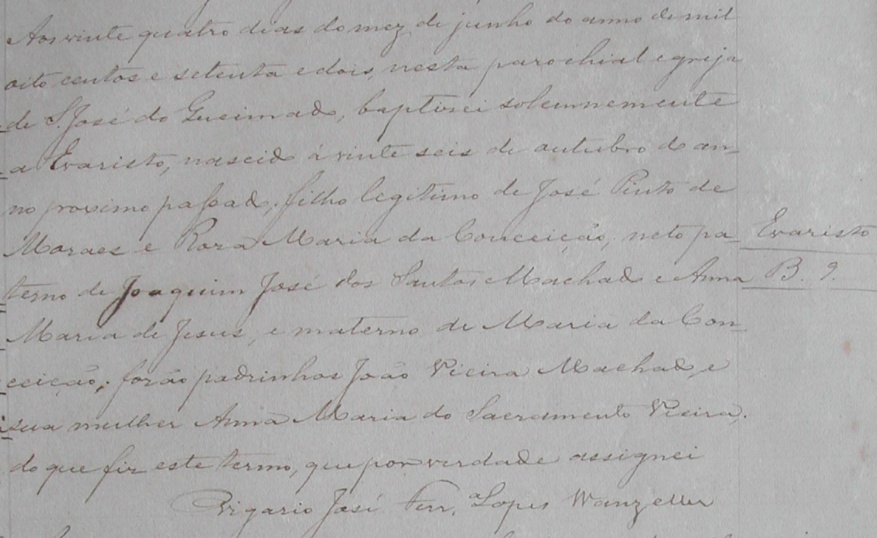 Aos vinte quatro dias do mez de junho do anno de mil
oito centos e setenta e dois, nesta parochial egreja
de S. José do Queimado, baptisei solemnemente
a Evaristo, nascido á vinte seis de outubro do an-
no proximo passado, filho legitimo de José Pinto de
Moraes e Roza Maria da Conceição, neto pa-
terno de Joaquim José dos Santos Machado e Anna
Maria de Jesus, e materno de Maria da Con-
ceição; forão padrinhos João Vieira Machado, e
sua mulher Anna Maria do Sacramento Vieira,
do que fiz este termo, que por verdade assignei
Vigario José Ferr.ª Lopes Wanzeller
Evaristo
B. 9.